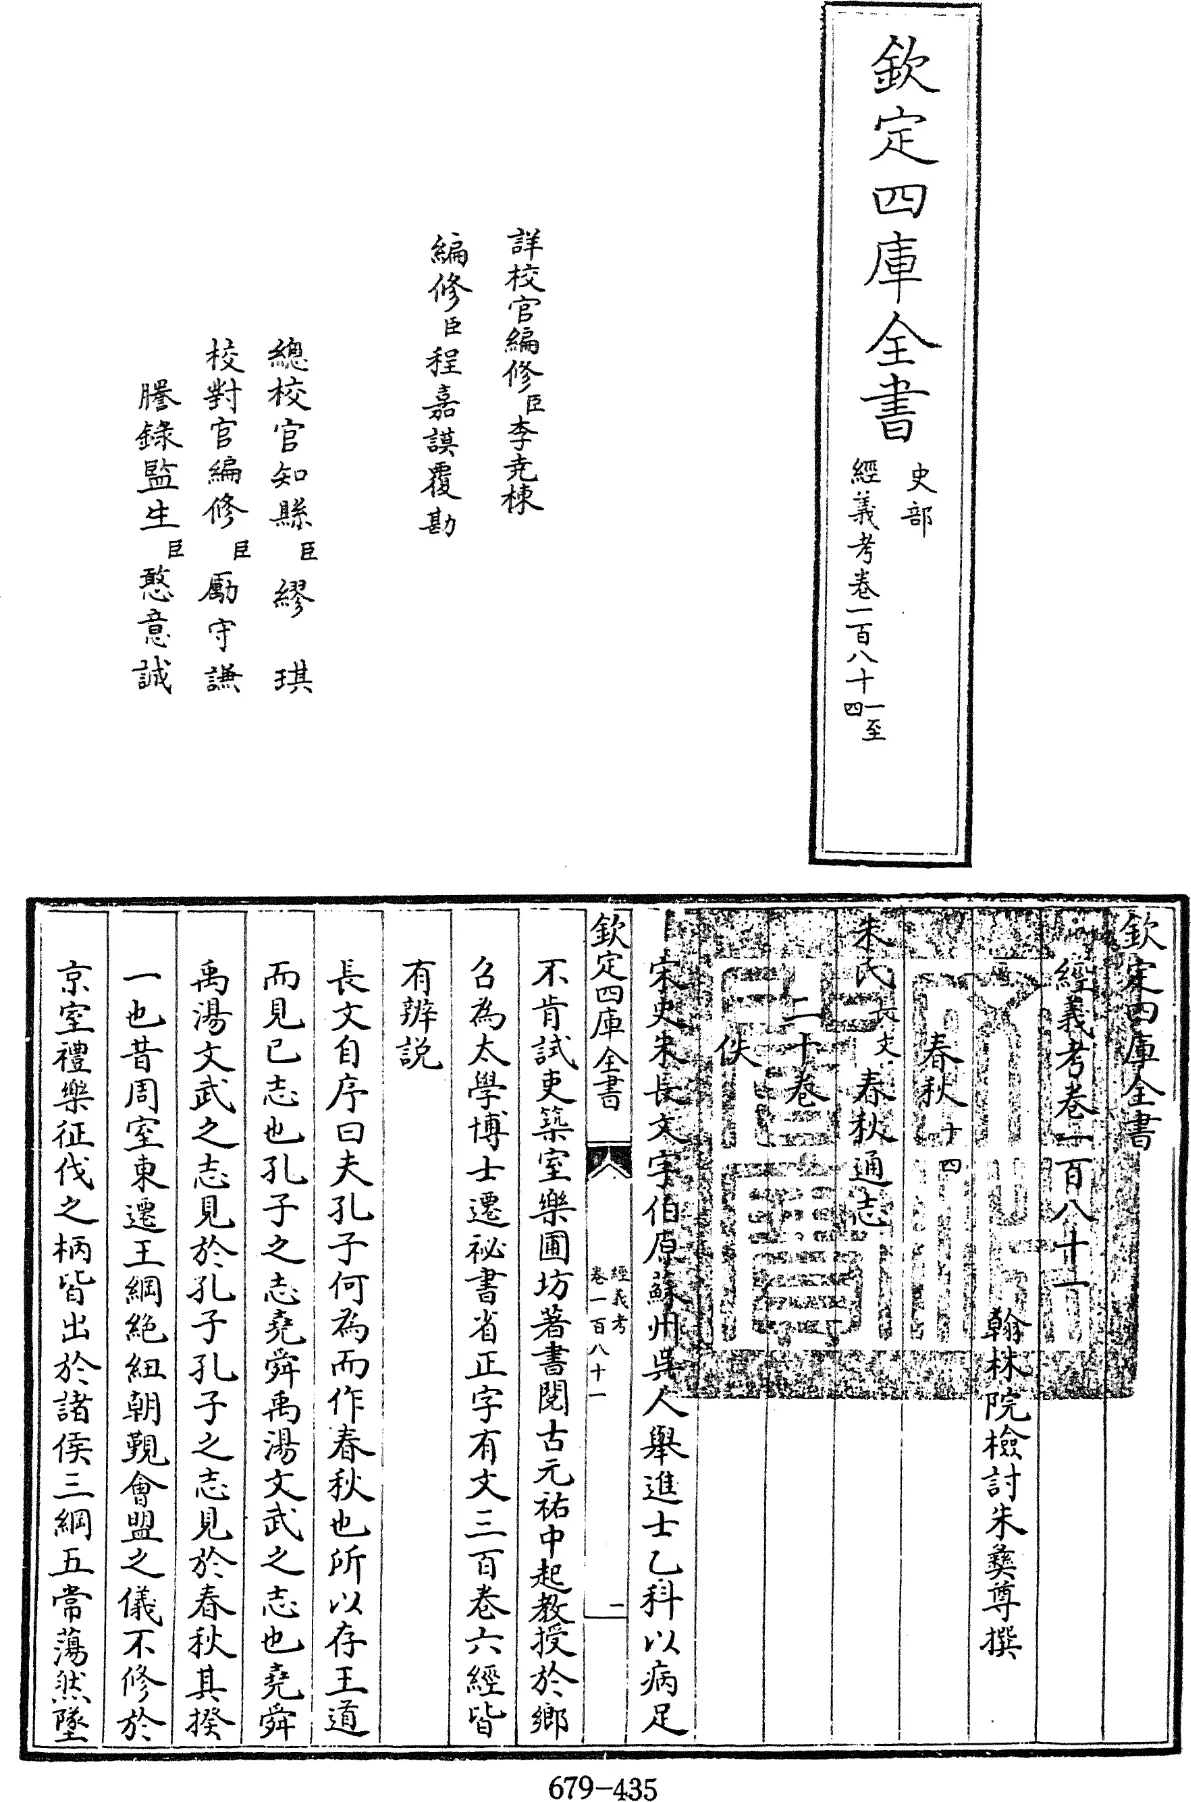 欽定四庫全書
史部
經義考卷一百八十一至
四
詳校官編修臣李堯棟
編修臣程嘉謨覆勘
總校官知縣臣繆琪
校對官編修臣勵守謙
謄錄監生臣憨意誠
欽定四庫全書
經義考卷一百八十一
翰林院檢討朱彝尊撰
春秋十四
朱氏長文春秋通志
二十卷
佚
宋史朱長文字伯原蘇州吳人舉進士乙科以病足
欽定四庫全書
經義考
卷一百八十一
一
不肯試吏築室樂圃坊著書閱古元祐中起教授於鄉
召為太學博士遷祕書省正字有文三百卷六經皆
有辨說
長文自序曰夫孔子何為而作春秋也所以存王道
而見已志也孔子之志堯舜禹湯文武之志也堯舜
禹湯文武之志見於孔子孔子之志見於春秋其揆
一也昔周室東遷王綱絶紐朝覲會盟之儀不修於
京室禮樂征伐之柄皆出於諸侯三綱五常蕩然墜
679-435